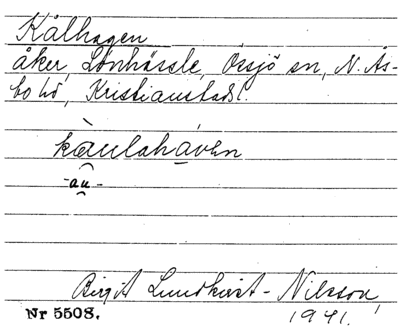 Kålhagen
åker, Lönhässle, Össjö sn, N. Ås-
bo hd, Kristianstads l.
kàulahàven
-au-
Birgit Lundkvist-Nilsson,
Nr 5508. 1941.